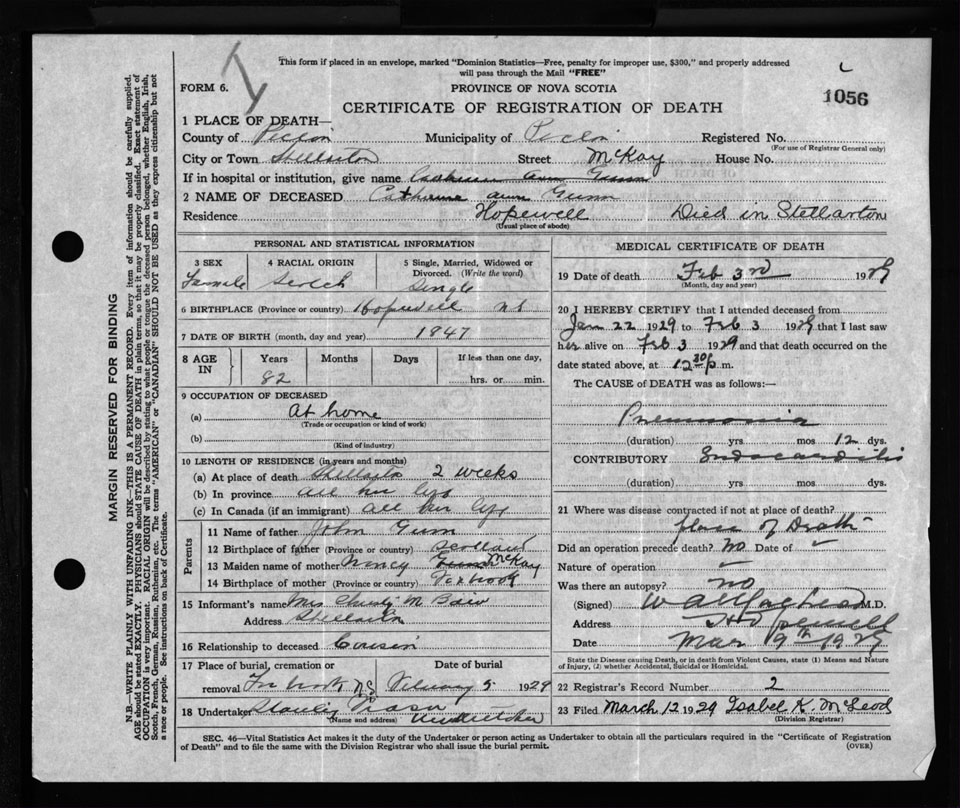 This form if placed in an envelope, marked "Dominion Statistics—Free, penalty for improper use, $300," and properly addressed
will pass through the Mail "FREE"
FORM 6.
PROVINCE OF NOVA SCOTIA
1056
CERTIFICATE OF REGISTRATION OF DEATH
1 PLACE OF DEATH—
County of Pictou Municipality of Pictou Registered No.
(For use of Registrar General only)
City or Town Stellarton Street McKay House No.
If in hospital or institution, give name Catherine Ann Gunn
2 NAME OF DECEASED Catherine Ann Gunn
Residence Hopewell Died in Stellarton
(Usual place of abode)
PERSONAL AND STATISTICAL INFORMATION
3 SEX 4 RACIAL ORIGIN 5 Single, Married, Widowed or Divorced. (Write the word)
Female Scotch Single
6 BIRTHPLACE (Province or country) Hopewell NS
7 DATE OF BIRTH (month, day and year) 1847
8 AGE IN Years Months Days If less than one day,
82 hrs. or min.
9 OCCUPATION OF DECEASED
(a) At home
(Trade or occupation or kind of work)
(b)
(Kind of industry)
10 LENGTH OF RESIDENCE (in years and months)
(a) At place of death Stellarton 2 weeks
(b) In province all her life
(c) In Canada (if an immigrant) all her life
Parents
11 Name of father John Gunn
12 Birthplace of father (Province or country) Scotland
13 Maiden name of mother Nancy Gunn McKay
14 Birthplace of mother (Province or country)
15 Informant's name Mrs M.
Address Stellarton
16 Relationship to deceased Cousin
17 Place of burial, cremation or Date of burial
removal NS 5 1929
18 Undertaker Stanley Undertaker
(Name and address)
MEDICAL CERTIFICATE OF DEATH
19 Date of death Feb 3rd 1929
(Month, day and year)
20 I HEREBY CERTIFY that I attended deceased from
Jan 22 1929 to Feb 3 1929 that I last saw
her alive on Feb 3 1929 and that death occurred on the
date stated above, at 12 30 p m.
The CAUSE OF DEATH was as follows:—
Pneumonia
(duration) yrs mos 12 dys.
CONTRIBUTORY Endocarditis
(duration) yrs. mos dys.
21 Where was disease contracted if not at place of death?
place of Death
Did an operation precede death? No Date of
Nature of operation
Was there an autopsy? no
(Signed) M.D.
Address Hopewell
Date Mar 19th 1929
State the Disease causing Death, or in death from Violent Causes, state (1) Means and Nature
of Injury, (2) whether Accidental, Suicidal or Homicidal.
22 Registrar's Record Number 2
23 Filed March 12 1929 Isabel K. McLeod
(Division Registrar)
SEC. 46—Vital Statistics Act makes it the duty of the Undertaker or person acting as Undertaker to obtain all the particulars required in the "Certificate of Registration
of Death" and to file the same with the Division Registrar who shall issue the burial permit.
(OVER)
MARGIN RESERVED FOR BINDING
N.B.—WRITE PLAINLY WITH UNFADING INK—THIS IS A PERMANENT RECORD. Every item of information should be carefully supplied.
AGE should be stated EXACTLY. PHYSICIANS should STATE CAUSE OF DEATH in plain terms, so that it may be properly classified. Exact statement of
OCCUPATION is very important. RACIAL ORIGIN will be described by stating to what people or tongue the deceased person belonged, whether English, Irish,
Scotch, French, German, Russian, Ruthenian, etc. The terms "AMERICAN" or "CANADIAN" SHOULD NOT BE USED as they express citizenship but not
a race or people. See instructions on back of Certificate.